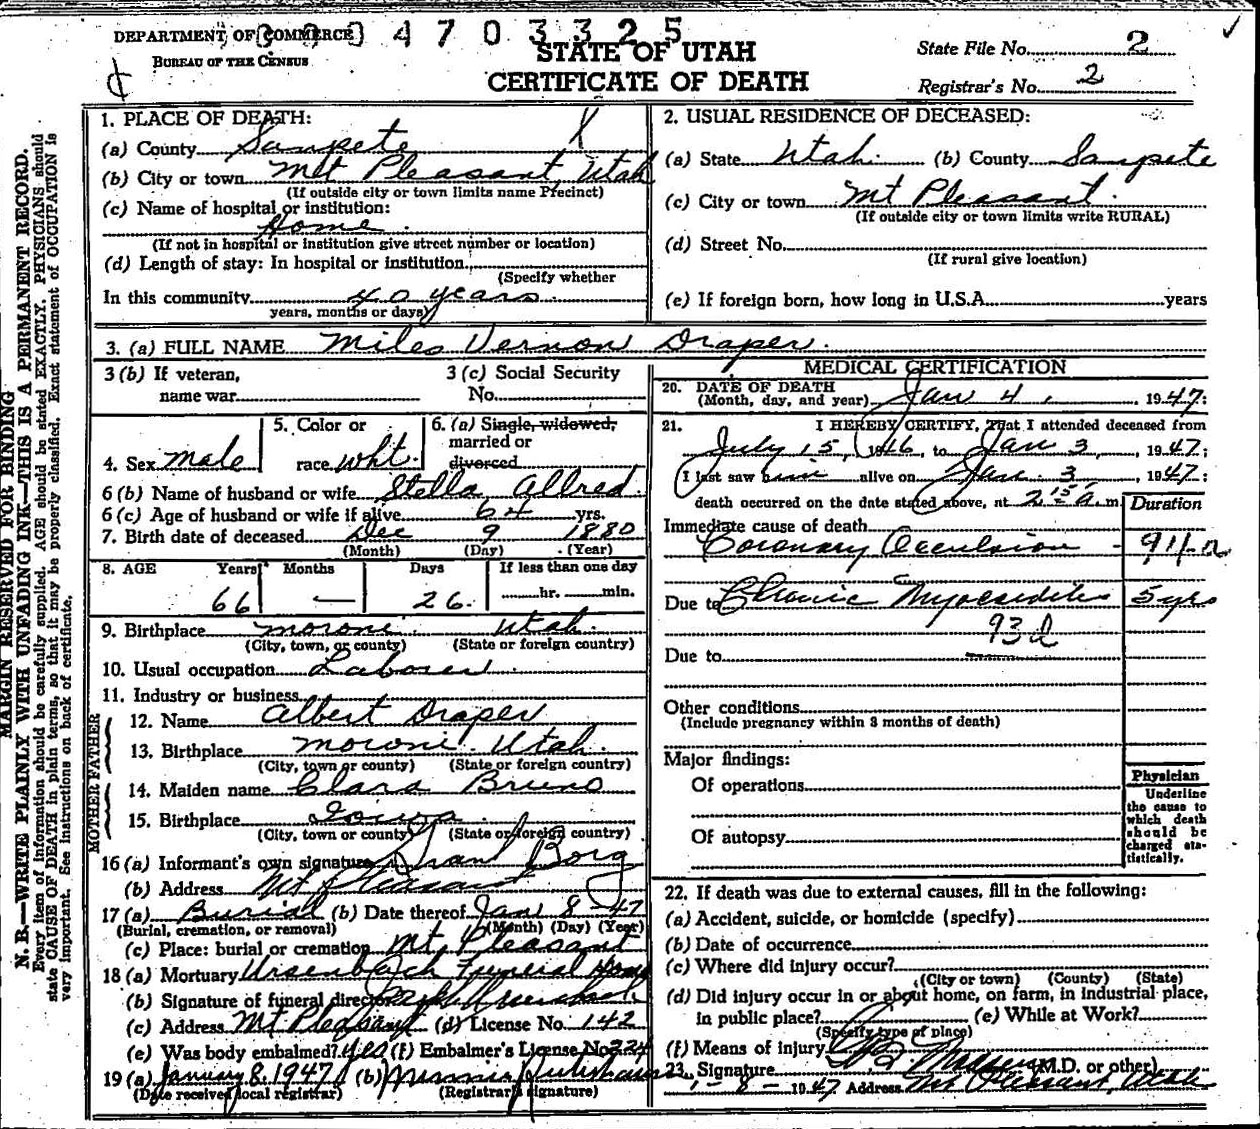 DEPARTMENT OF COMMERCE
BUREAU OF THE CENSUS
4703325
STATE OF UTAH
CERTIFICATE OF DEATH
State File No. 2
Registrar's No. 2
MARGIN RESERVED FOR BINDING
N. B.—WRITE PLAINLY WITH UNFADING INK—THIS IS A PERMANENT RECORD.
Every item of information should be carefully supplied. AGE should be stated EXACTLY. PHYSICIANS should
state CAUSE OF DEATH in plain terms, so that it may be properly classified. Exact statement of OCCUPATION is
very important. See instructions on back of certificate.
1. PLACE OF DEATH:
(a) County Sanpete
(b) City or town Mt Pleasant, Utah
(If outside city or town limits name Precinct)
(c) Name of hospital or institution:
Home
(If not in hospital or institution give street number or location)
(d) Length of stay: In hospital or institution
(Specify whether
In this community 40 years
years, months or days)
2. USUAL RESIDENCE OF DECEASED:
(a) State Utah (b) County Sanpete
(c) City or town Mt Pleasant
(If outside city or town limits write RURAL)
(d) Street No.
(If rural give location)
(e) If foreign born, how long in U.S.A. years
3. (a) FULL NAME Miles Vernon Draper
3 (b) If veteran,
name war
3 (c) Social Security
No.
4. Sex male
5. Color or
race wht.
6. (a) Single, widowed,
married or
divorced
6 (b) Name of husband or wife Stella Allred
6 (c) Age of husband or wife if alive 64 yrs.
7. Birth date of deceased Dec 9 1880
(Month) (Day) (Year)
8. AGE Years Months Days If less than one day
66 — 26 hr. min.
9. Birthplace Moroni Utah
(City, town, or county) (State or foreign country)
10. Usual occupation Laborer
11. Industry or business
FATHER
12. Name Albert Draper
13. Birthplace Moroni Utah
(City, town or county) (State or foreign country)
MOTHER
14. Maiden name Clara Bruno
15. Birthplace Iowa
(City, town or county) (State or foreign country)
16 (a) Informant's own signature Grant Borg
(b) Address Mt Pleasant
17 (a) Burial (b) Date thereof Jan 8-47
(Burial, cremation, or removal) (Month) (Day) (Year)
(c) Place: burial or cremation Mt. Pleasant
18 (a) Mortuary Ursenbach Funeral Home
(b) Signature of funeral director
(c) Address Mt Pleasant (d) License No. 142
(e) Was body embalmed? yes (f) Embalmer's License No. 224
19 (a) January 8, 1947 (b) Minnie
(Date received local registrar) (Registrar's signature)
MEDICAL CERTIFICATION
20. DATE OF DEATH
(Month, day, and year) Jan 4, 1947:
21. I HEREBY CERTIFY, That I attended deceased from
July 15, 1946, to Jan 3, 1947;
I last saw him alive on Jan. 3, 1947;
death occurred on the date stated above, at 2 15 a. m.
Duration
Immediate cause of death
Coronary Occulsion
Due to Chronic Myocarditis 5 yrs
93d
Due to
Other conditions
(Include pregnancy within 3 months of death)
Major findings:
Of operations
Of autopsy
Physician
Underline
the cause to
which death
should be
charged sta-
tistically.
22. If death was due to external causes, fill in the following:
(a) Accident, suicide, or homicide (specify)
(b) Date of occurrence
(c) Where did injury occur?
(City or town) (County) (State)
(d) Did injury occur in or about home, on farm, in industrial place,
in public place? (e) While at Work?
(Specify type of place)
(f) Means of injury
23. Signature (M.D. or other)
1-8-1947 Address Mt Pleasant, Utah